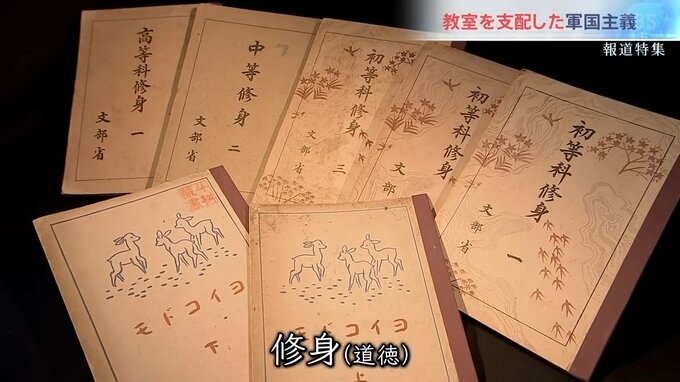 教室を支配した軍国主義
報道特集
高等科修身 一
文部省
中等修身 二
文部省
初等科修身 三
文部省
初等科修身
文部省
初等科修身 一
文部省
ヨイコドモ
下
ヨイコドモ
上
修身(道徳)